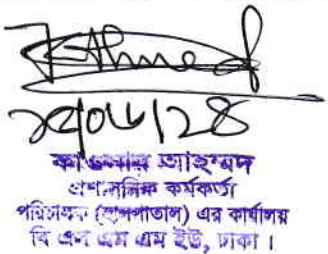 KAhmed
কাওসার আহম্মদ
প্রশাসনিক কর্মকর্তা
পরিচালক (হাসপাতাল) এর কার্যালয়
বি এস এম এম ইউ, ঢাকা ।